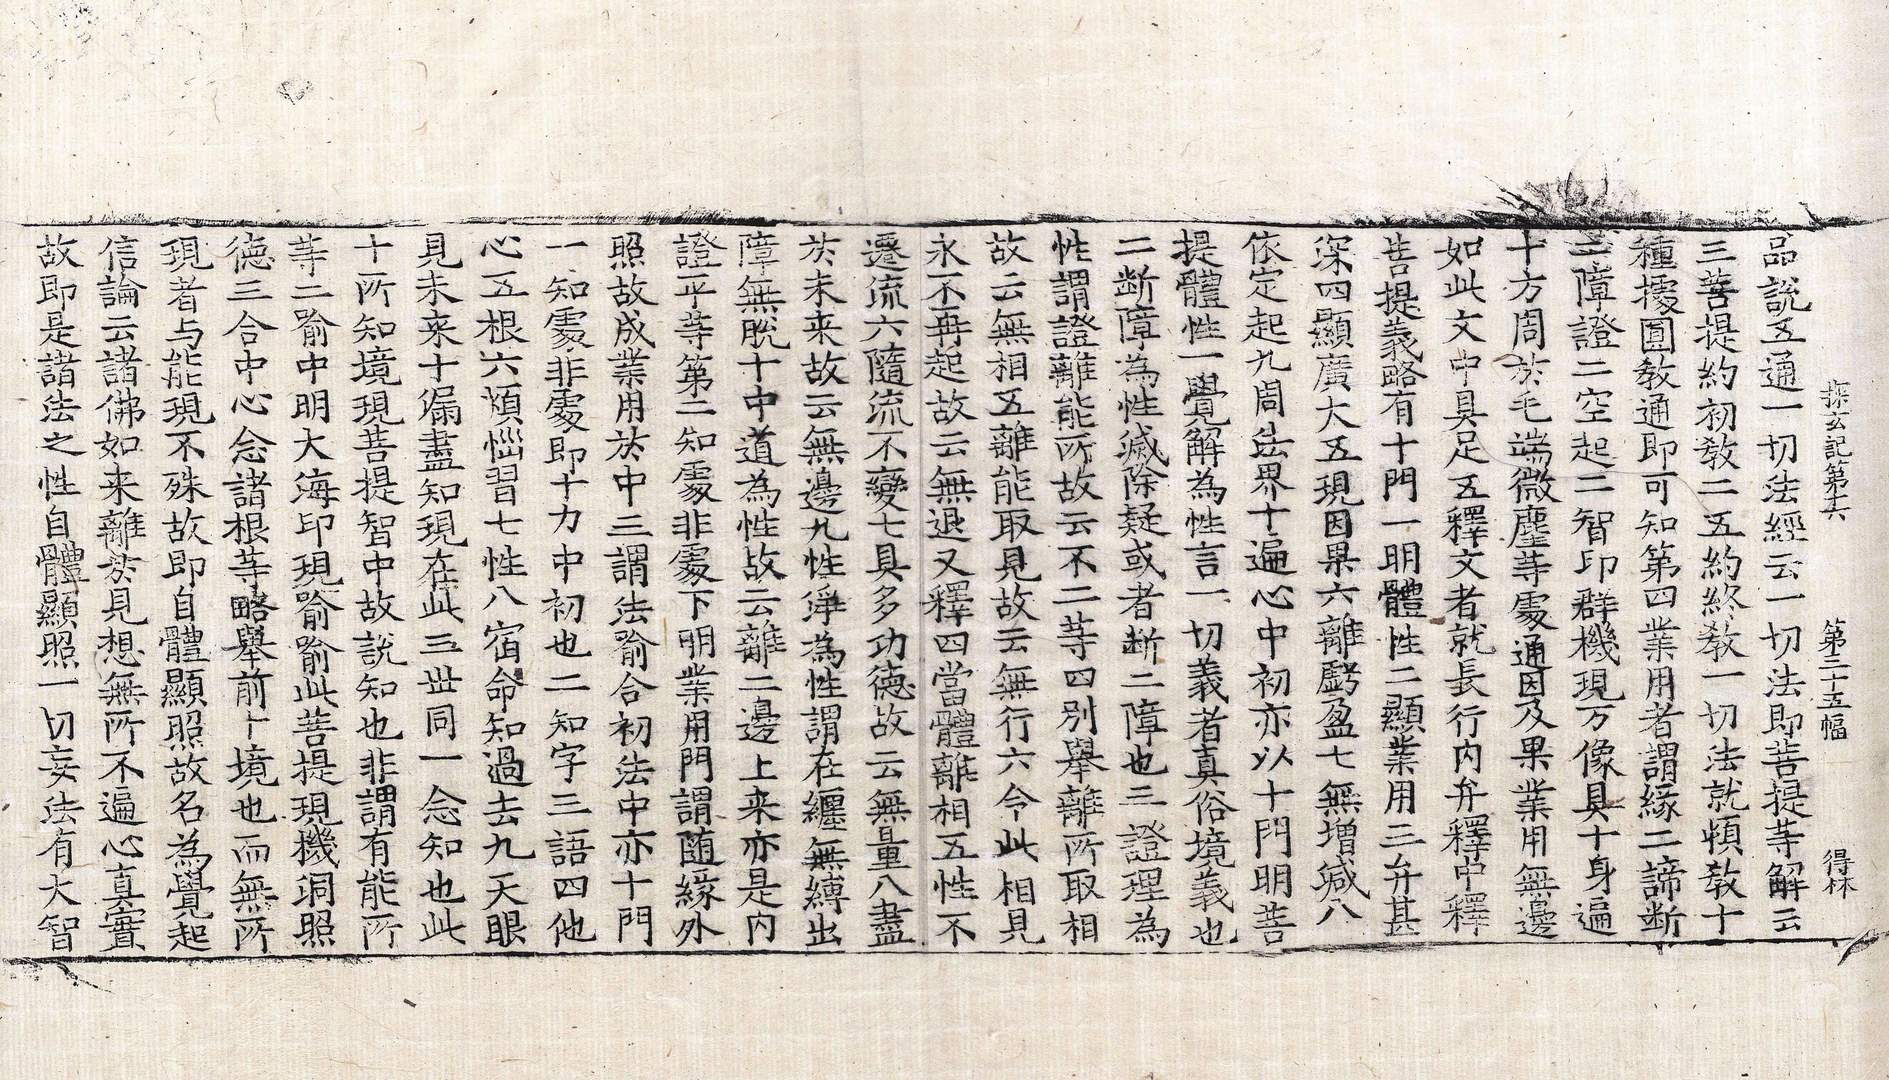 探玄記第十六　第二十五幅　得林
品說五通一切法經云一切法即菩提等解云
三菩提約初敎二五約終敎一切法就頓敎十
種據圓敎通即可知第四業用者謂緣二諦断
二障證二空起二智印群機現万像具十身遍
十方周扵毛端微塵等處通因及果業用無邊
如此文中具足五釋文者就長行内弁釋中釋
菩提義略有十門一明體性二顯業用三弁甚
深四顯廣大五現因果六離虧盈七無增減八
依定起九周法界十遍心中初亦以十門明菩
提體性一覺解為性言一切義者真俗境義也
二断障為性滅除疑或者断二障也三證理為
性謂證離能所故云不二等四別舉離所取相
故云無相五離能取見故云無行六今此相見
永不再起故云無退又釋四當體離相五性不
遷流六隨流不變七具多功德故云無量八盡
扵未来故云無邊九性淨為性謂在纏無縛出
障無脫十中道為性故云離二邊上来亦是内
證平等第二知處非處下明業用門謂随緣外
照故成業用扵中三謂法喻合初法中亦十門
一知處非處即十力中初也二知字三語四他
心五根六煩惱習七性八宿命知過去九天眼
見未来十漏盡知現在此三世同一念知也此
十所知境現菩提智中故說知也非謂有能所
等二喻中明大海印現喻喻此菩提現機洞照
德三合中心念諸根等略舉前十境也而無所
現者与能現不殊故即自體顯照故名為覺起
信論云諸佛如来離扵見想無所不遍心真實
故即是諸法之性自體顯照一切妄法有大智